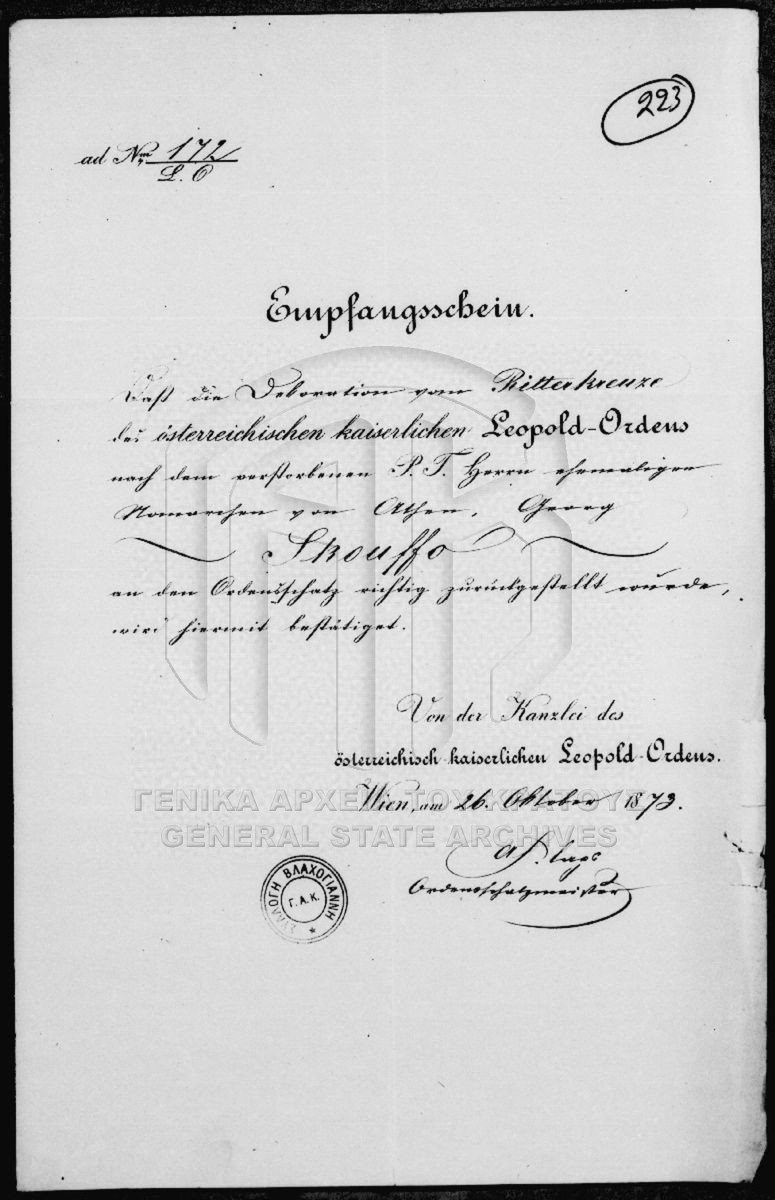 223
ad Nro 172
L. O
Empfangsschein.
Daß die Dekoration vom Ritterkreuze
des österreichischen kaiserlichen Leopold-Ordens
nach dem verstorbenen P. T. Herrn ehemaligen
Nomarchen von Athen, Georg
Skouffo
an den Ordensschatz richtig zurückgestellt wurde,
wird hiermit bestätiget.
Von der Kanzlei des
österreichisch-kaiserlichen Leopold-Ordens.
Wien, am 26. Oktober 1873.
Ordensschatzmeister
ΣΥΛΛΟΓΗ ΒΛΑΧΟΓΙΑΝΝΗ
Γ.Α.Κ.
ΓΕΝΙΚΑ ΑΡΧΕΙΑ ΤΟΥ ΚΡΑΤΟΥΣ
GENERAL STATE ARCHIVES